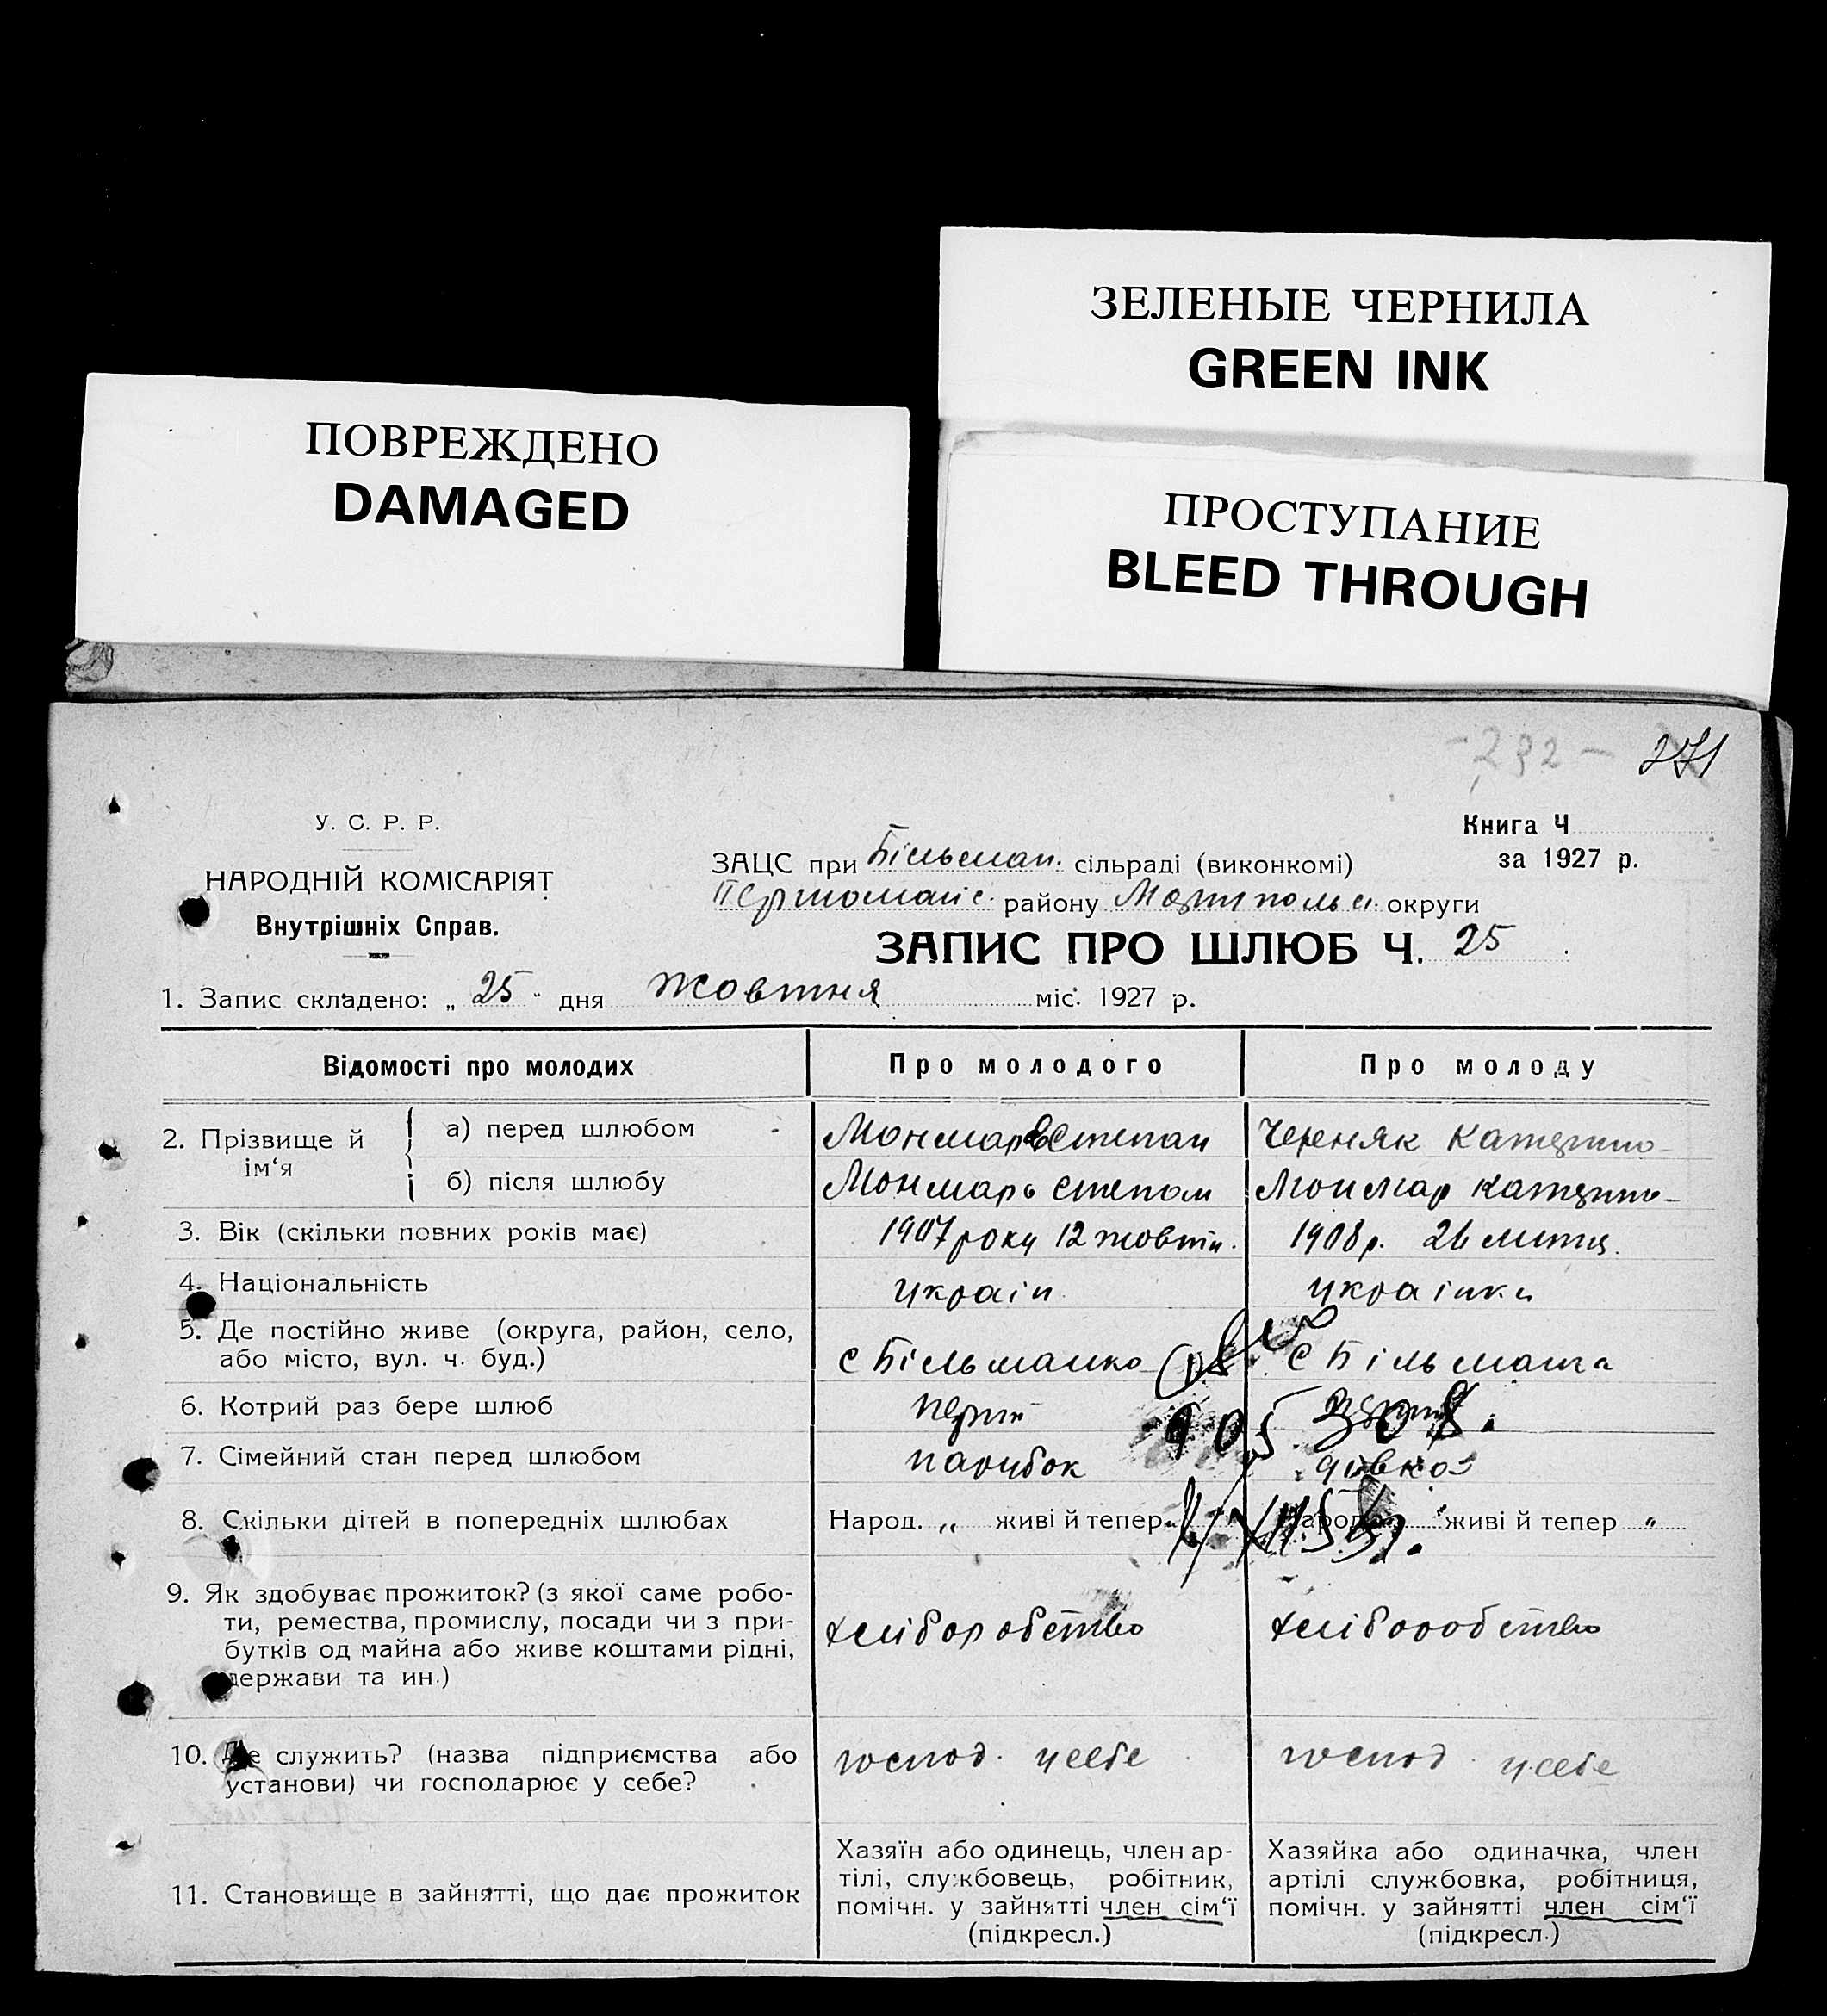 ЗЕЛЕНЫЕ ЧЕРНИЛА
GREEN INK
ПОВРЕЖДЕНО
DAMAGED
ПРОСТУПАНИЕ
BLEED THROUGH
-292- 271
У. С. Р. Р.
НАРОДНІЙ КОМІСАРІЯТ
Внутрішніх Справ.
Книга Ч
за 1927 р.
ЗАЦС при Більман. сільраді (виконкомі)
Першомайс. району Маріупольс. округи
ЗАПИС ПРО ШЛЮБ Ч. 25
1. Запис складено: „ 25 " дня Жовтня міс. 1927 р.
Відомості про молодих Про молодого Про молоду
2. Прізвище й ім‘я
а) перед шлюбом Степан Черняк
б) після шлюбу Монмарь Степан Монмар
3. Вік (скільки повних років має) 1907 року 12 жовтн. 1908 р.
4. Національність україн українка
5. Де постійно живе (округа, район, село, с Більманка с Більманка
або місто, вул. ч. буд.)
6. Котрий раз бере шлюб перш
7. Сімейний стан перед шлюбом парубок дівкоз
8. Скільки дітей в попередніх шлюбах Народ. „ живі й тепер „ Народ. " живі й тепер „
9. Як здобуває прожиток? (з якої саме робо-
ти, ремества, промислу, посади чи з при-
бутків од майна або живе коштами рідні, хліборобство хліборобство
держави та ин.)
10. Де служить? (назва підприємства або господ. у себе господ. у себе
установи) чи господарює у себе?
11. Становище в зайнятті, що дає прожиток
Хазяїн або одинець, член ар-
тілі, службовець, робітник,
помічн. у зайнятті член сім‘ї
(підкресл.)
Хазяйка або одиначка, член
артілі службовка, робітниця,
помічн. у зайнятті член сім‘ї
(підкресл.)